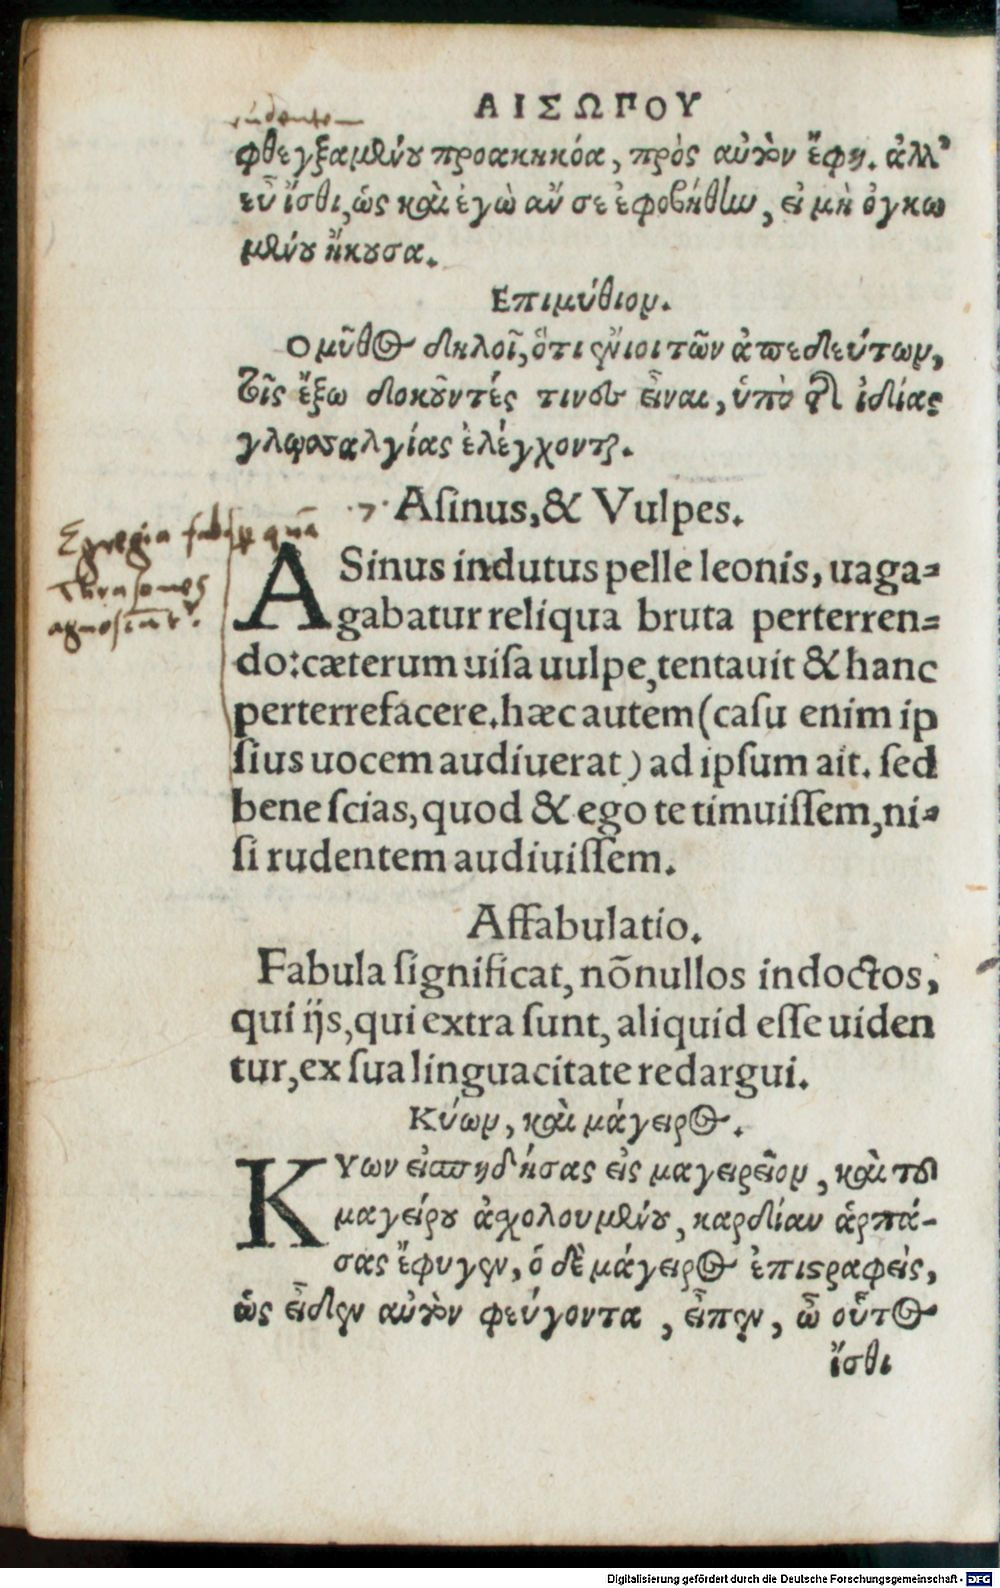 ΑΙΣΩΠΟΥ
φθεγξαμένου προακηκόα, πρὸς αὐτὸν ἔφη. ἀλλ'
εὖ ἴσθι, ὡς καὶ ἐγὼ ἄν σε ἐφοβήθην, εἰ μὴ ὀγκω
μένου ἤκουσα.
Επιμύθιον.
Ο μῦθος δηλοῖ, ὅτι ἔνιοι τῶν ἀπαιδεύτων,
τοῖς ἔξω δοκοῦντές τινες εἶναι, ὑπὸ τῆς ἰδίας
γλωσσαλγίας ἐλέγχονται.
·7· Aſinus, & Vulpes.
Egregia fabula quā
Thrasones
ASinus indutus pelle leonis, uaga=
gabatur reliqua bruta perterren=
do: cæterum uiſa uulpe, tentauit & hanc
perterrefacere. hæc autem (caſu enim ip
ſius uocem audiuerat) ad ipſum ait. ſed
bene ſcias, quod & ego te timuiſſem, ni=
ſi rudentem audiuiſſem.
Affabulatio.
Fabula ſignificat, nōnullos indoctos,
qui ijs, qui extra ſunt, aliquid eſſe uiden
tur, ex ſua linguacitate redargui.
Κύων, καὶ μάγειρος.
ΚΥων εἰσπηδήσας εἰς μαγειρεῖον, καὶ τοῦ
μαγείρου ἀσχολουμένου, καρδίαν ἁρπά-
σας ἔφυγεν, ὁ δὲ μάγειρος ἐπιστραφεὶς,
ὡς εἶδεν αὐτὸν φεύγοντα, εἶπεν, ὦ οὗτος
ἴσθι
Digitalisierung gefördert durch die Deutsche Forschungsgemeinschaft - DFG